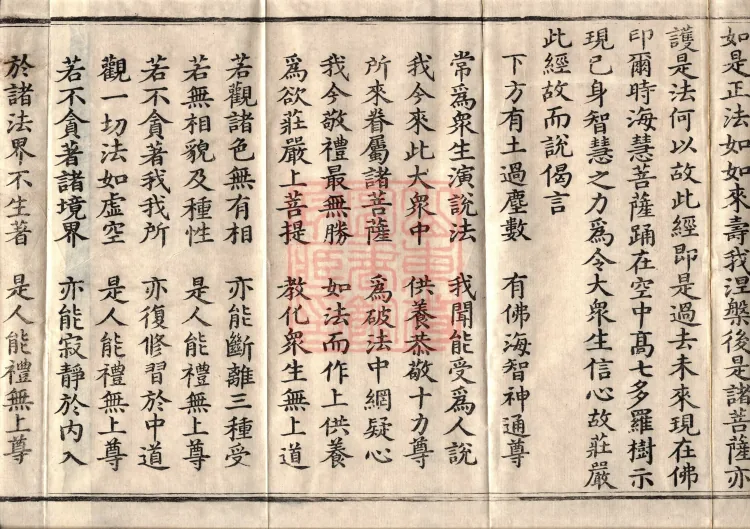 如是正法如如來壽我涅槃後是諸菩薩亦
護是法何以故此經即是過去未來現在佛
印爾時海慧菩薩踊在空中高七多羅樹示
現己身智慧之力為令大衆生信心故莊嚴
此經故而說偈言
下方有土過塵數　有佛海智神通尊
常為衆生演說法　我聞能受為人說
我今來此大衆中　供養恭敬十力尊
所來眷屬諸菩薩　為破法中網疑心
我今敬禮最無勝　如法而作上供養
為欲莊嚴上菩提　教化衆生無上道
若觀諸色無有相　亦能斷離三種受
若無相貌及種性　是人能禮無上尊
若不貪著我我所　亦復修習於中道
觀一切法如虛空　是人能禮無上尊
若不貪著諸境界　亦能寂靜於內入
於諸法界不生著　是人能禮無上尊